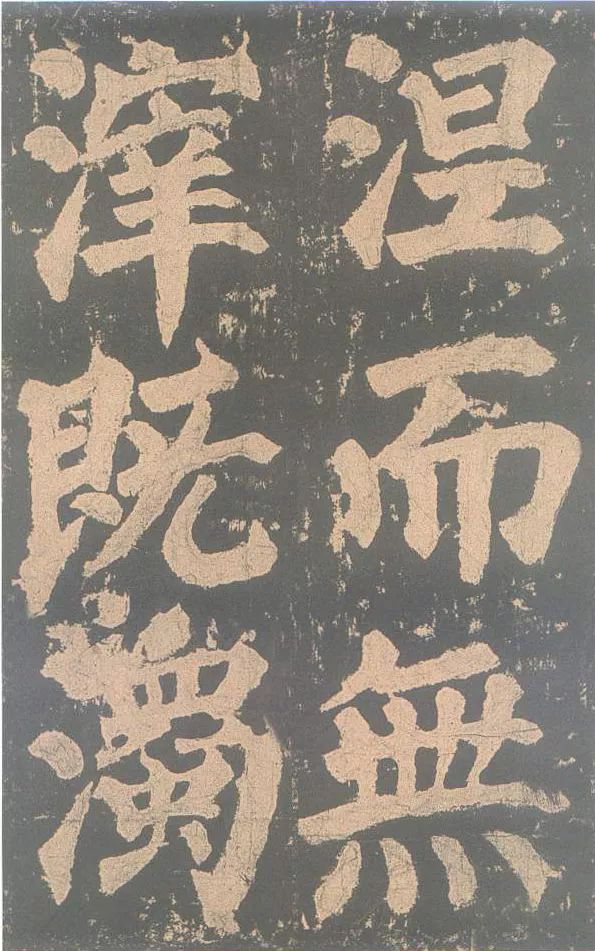 涅而無
滓既濁